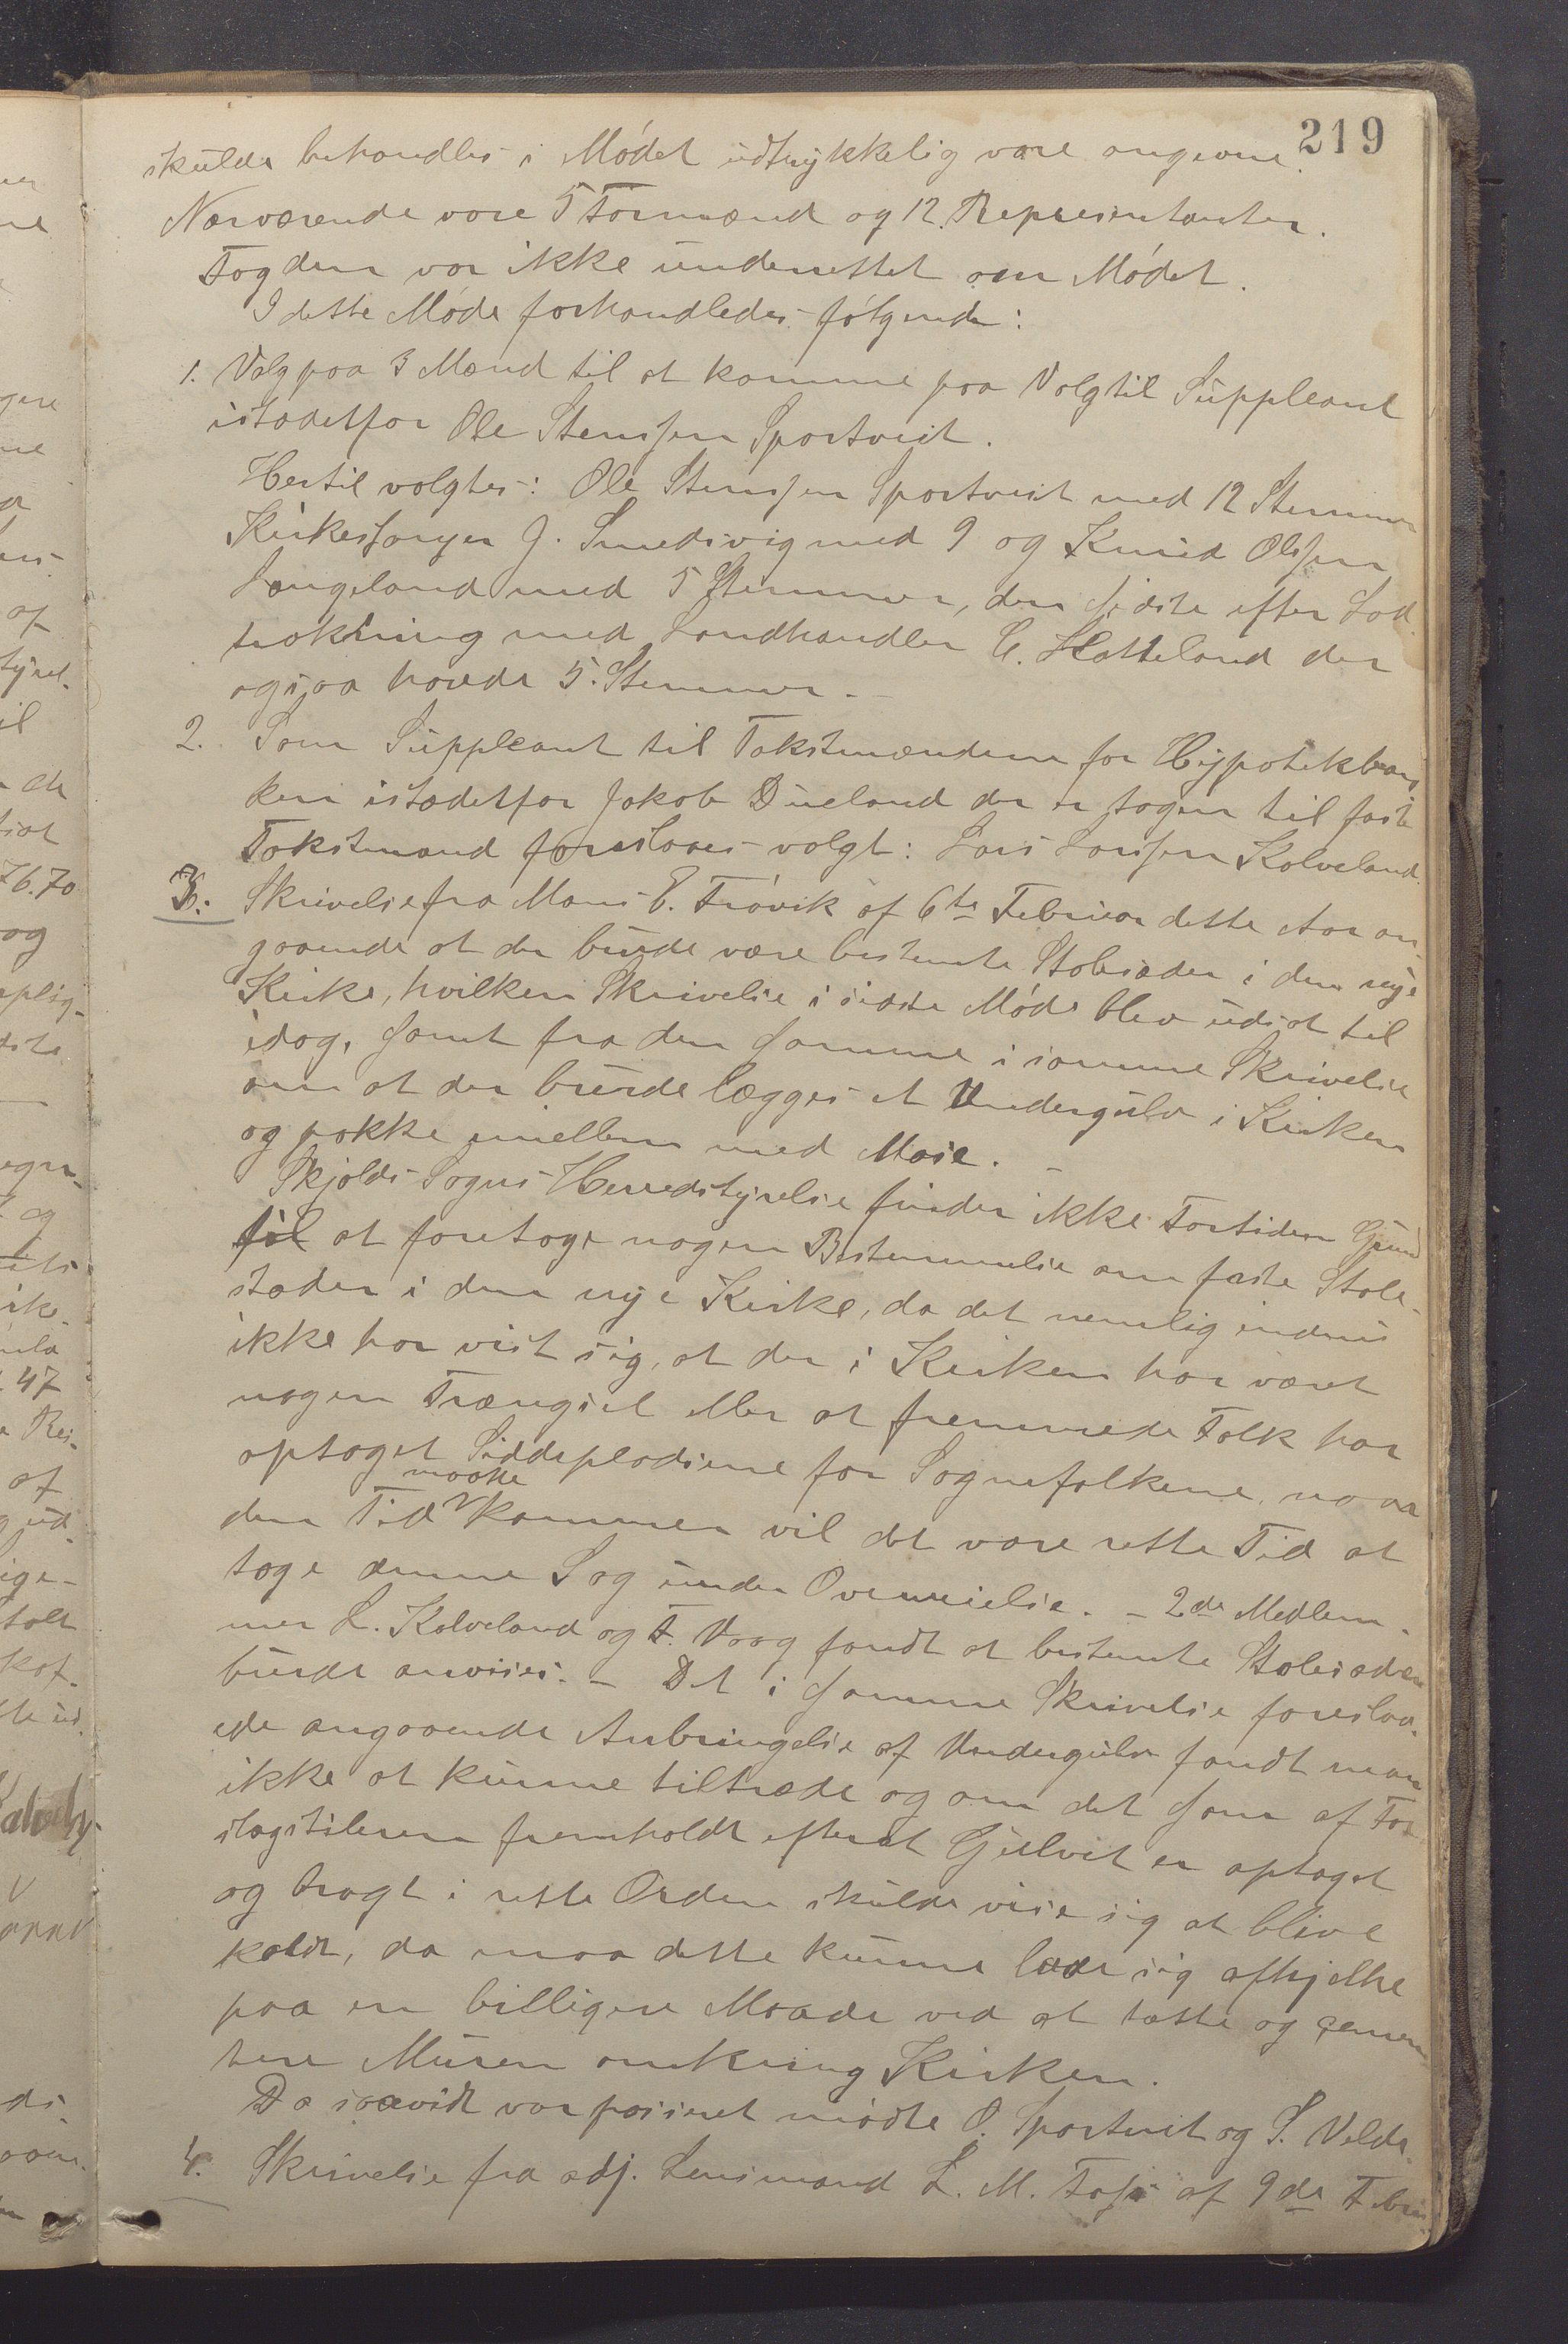 219
skulde behandles i Mødet udtrykkelig vare angivne.
Nærværende vare 5 Formænd og 12 Representanter.
Fogden var ikke underrettet om Mødet.
I dette Møde forhandledes følgende:
1. Valg paa 3 Mænd til at komme paa Valg til Suppleant
istadetfor Ole Stensen Sportveit.
Hertil valgtes: Ole Stensen Sportveit med 12 Stemmer
Kirkesanger J. Smedsvig med 9 og Knud Olsen
Langeland med 5 Stemmer, den sidste efter Lod
trækning med Landhandler C. Hatteland der
ogsaa havde 5. Stemmer. -
2. Som Suppleant til Takstmændene for Hypotekban
ken istadetfor Jakob Dueland der er tagen til fast
Takstmand foreslaaes valgt: Lars Larsen Kalveland.
3. Skrivelse fra Mons E. Frövik af 6te Februar dette Aar an
gaaende at der burde være bestemte Stolesæder i den nye
Kirke, hvilken Skrivelse i sidste Møde blev udsat til
idag, samt fra den samme i samme Skrivelse
om at der burde lægges et Undergulv i Kirken
og pakke imellem med Mose. -
Skjolds Sogns Herredstyrelse finder ikke Fortiden Grund
til at foretage nogen Bestemmelse om faste Stole-
stader i den nye Kirke, da det nemlig endnu
ikke har vist sig, at der i Kirken har været
nogen Trængsel eller at fremmede Folk har
optaget Siddepladsene for Sognefolkene, naar
maatte
den Tid kommer vil det være rette Tid at
tage denne Sag under Overveielse. - 2de Medlem-
mer L. Kalveland og T. Vaag fandt at bestemte Stolesæder
burde anvises. - Det i samme Skrivelse foreslaa-
ede angaaende Anbringelse af Undergulv fandt man
ikke at kunne tiltræde og om det som af For
slagstileren fremholdt efterat Gulvet er optaget
og bragt i rette Orden skulde vise sig at blive
koldt, da maa dette kunne lade sig afhjelpe
paa en billigere Maade ved at tætte og cemen
tere Muren omkring Kirken.
Da saavidt var passeret mødte O. Sportveit og S. Velde.
4. Skrivelse fra adj. Lensmand L. M. af 9de Febru